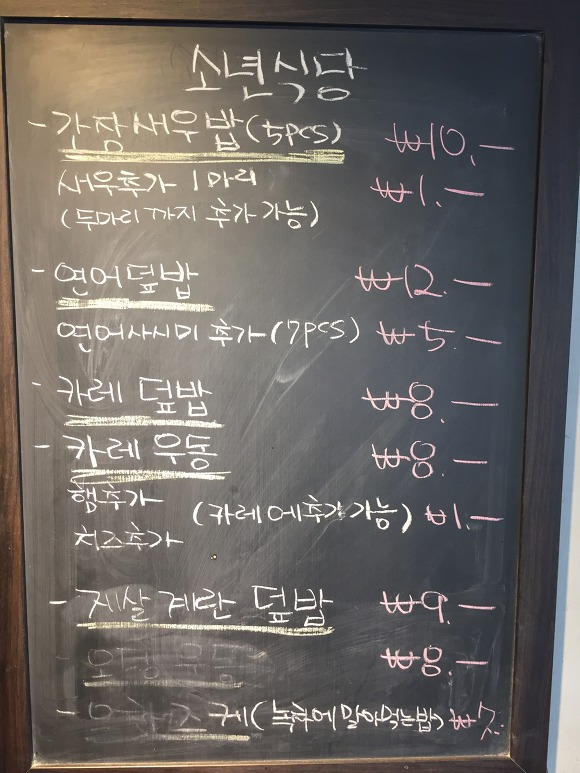 소년식당
- 간장새우밥(5pcs) ₩10.-
새우추가 1마리 ₩1.-
(두마리까지 추가 가능)
- 연어덮밥 ₩12.-
연어사시미 추가(7pcs) ₩5.-
- 카레 덮밥 ₩8.-
- 카레 우동 ₩8.-
햄추가
(카레에추가가능) ₩1.-
치즈추가
- 게살 계란 덮밥 ₩9.-
- 우동 ₩8.-
- (녹차에말아먹는밥) ₩7.-